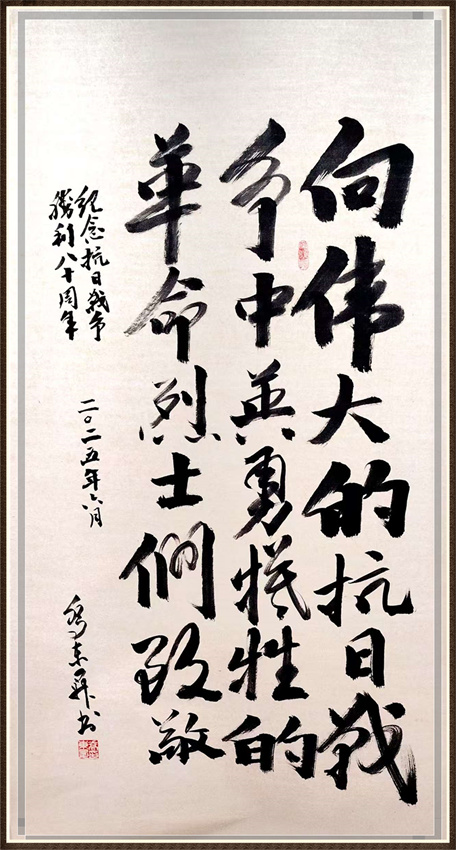 向伟大的抗日战
争中英勇犠牲的
革命烈士們致敬
纪念抗日战争
勝利八十周年
二〇二五年六月